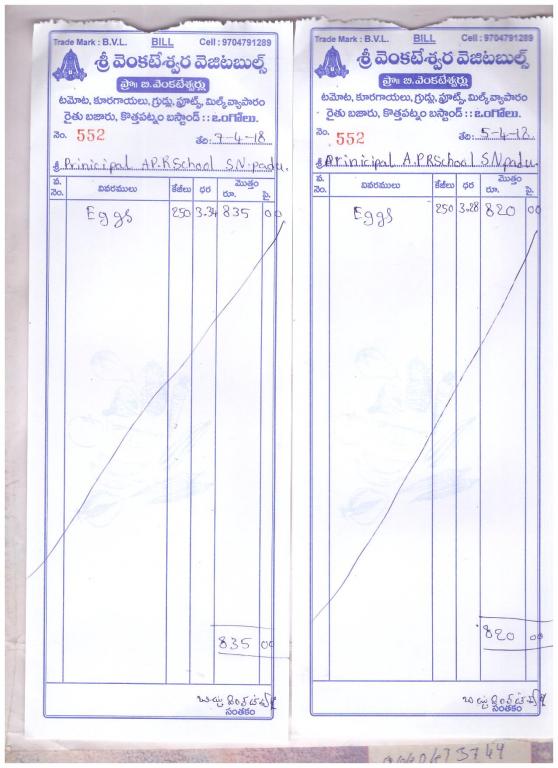 Trade Mark : B.V.L. BILL Cell : 9704791289
శ్రీ వెంకటేశ్వర వెజిటబుల్స్
ప్రొ॥ బి.వెంకటేశ్వర్లు
టమోట, కూరగాయలు, గ్రుడ్లు, ఫ్రూట్స్, మిల్క్ వ్యాపారం
రైతు బజారు, కొత్తపట్నం బస్టాండ్ : : ఒంగోలు.
నెం. 552 తేది: 7-4-18
శ్రీ Prinicipal A.P.R School S.N.padu.
వ. నెం. వివరములు కేజీలు ధర మొత్తం రూ. పై.
Eggs 250 3-34 835 00
835 00
సంతకం
Trade Mark : B.V.L. BILL Cell : 9704791289
శ్రీ వెంకటేశ్వర వెజిటబుల్స్
ప్రొ॥ బి.వెంకటేశ్వర్లు
టమోట, కూరగాయలు, గ్రుడ్లు, ఫ్రూట్స్, మిల్క్ వ్యాపారం
రైతు బజారు, కొత్తపట్నం బస్టాండ్ : : ఒంగోలు.
నెం. 552 తేది: 5-4-18
శ్రీ Prinicipal A.P.R School S.N.padu.
వ. నెం. వివరములు కేజీలు ధర మొత్తం రూ. పై.
Eggs 250 3-28 820 00
820 00
సంతకం